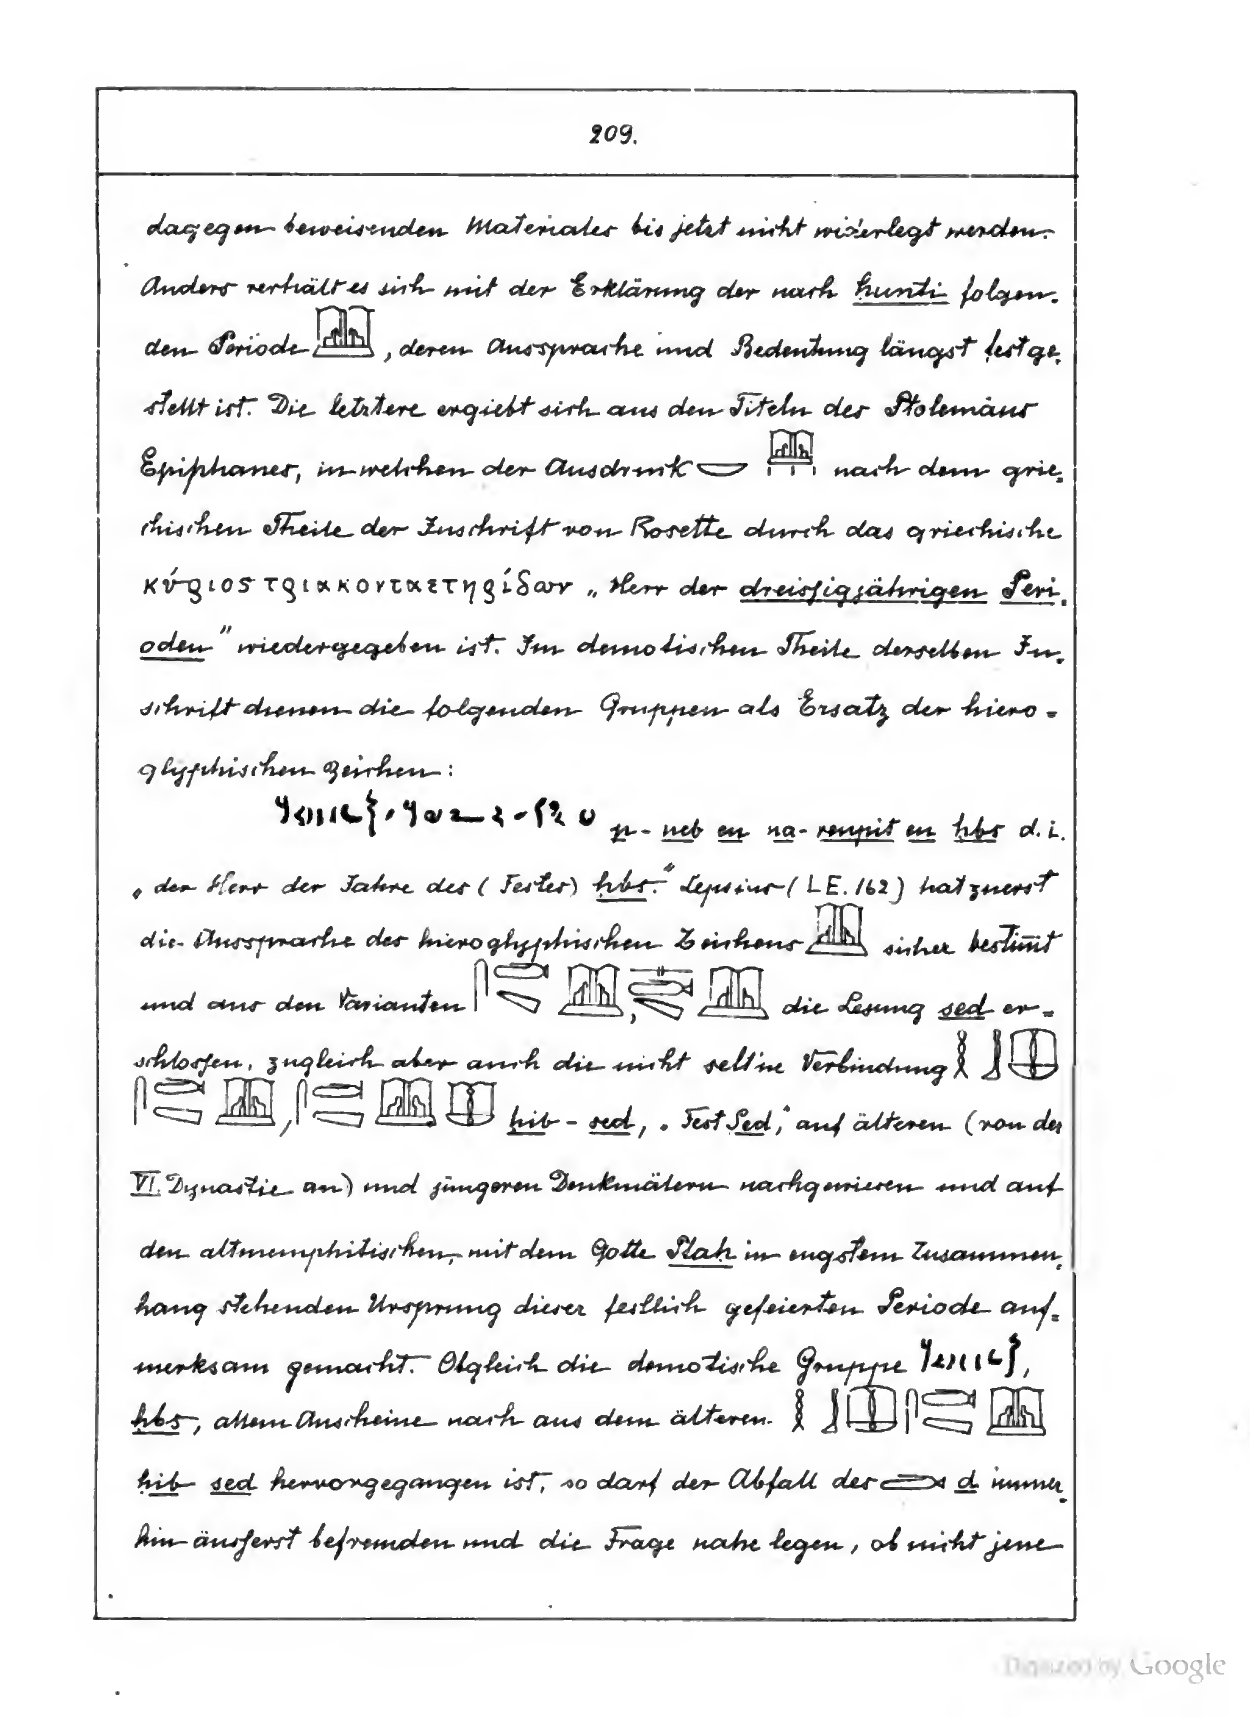 209.
dagegen beweisenden Materiales bis jetzt nicht widerlegt werden.
Anders verhält es sich mit der Erklärung der nach ḥunti folgen-
den Periode , deren Aussprache und Bedeutung längst festge-
stellt ist. Die letztere ergiebt sich aus den Titeln des Ptolemäus
Epiphanes, in welchen der Ausdruck nach dem grie-
chischen Theile der Inschrift von Rosette durch das griechische
κύριος τριακονταετηρίδων „Herr der dreissigjährigen Peri-
oden" wiedergegeben ist. Im demotischen Theile derselben In-
schrift dienen die folgenden Gruppen als Ersatz der hiero-
glyphischen Zeichen:
p-neb en na-renpit en ḥbs d. i.
„der Herr der Jahre des (Festes) ḥbs." Lepsius (LE. 162) hat zuerst
die Aussprache des hieroglyphischen Zeichens sicher bestim̄t
und aus den Varianten , die Lesung sed er-
schlossen, zugleich aber auch die nicht selt'ne Verbindung
, ḥib-sed, „Fest Sed," auf älteren (von der
VI. Dynastie an) und jüngeren Denkmälern nachgewiesen und auf
den altmemphitischen, mit dem Gotte Ptaḥ in engstem Zusammen-
hang stehenden Ursprung dieser festlich gefeierten Periode auf-
merksam gemacht. Obgleich die demotische Gruppe ,
ḥbs, allem Anscheine nach aus dem älteren
ḥib sed hervorgegangen ist, so darf der Abfall des d immer-
hin äusserst befremden und die Frage nahe legen, ob nicht jene
Digitized by Google